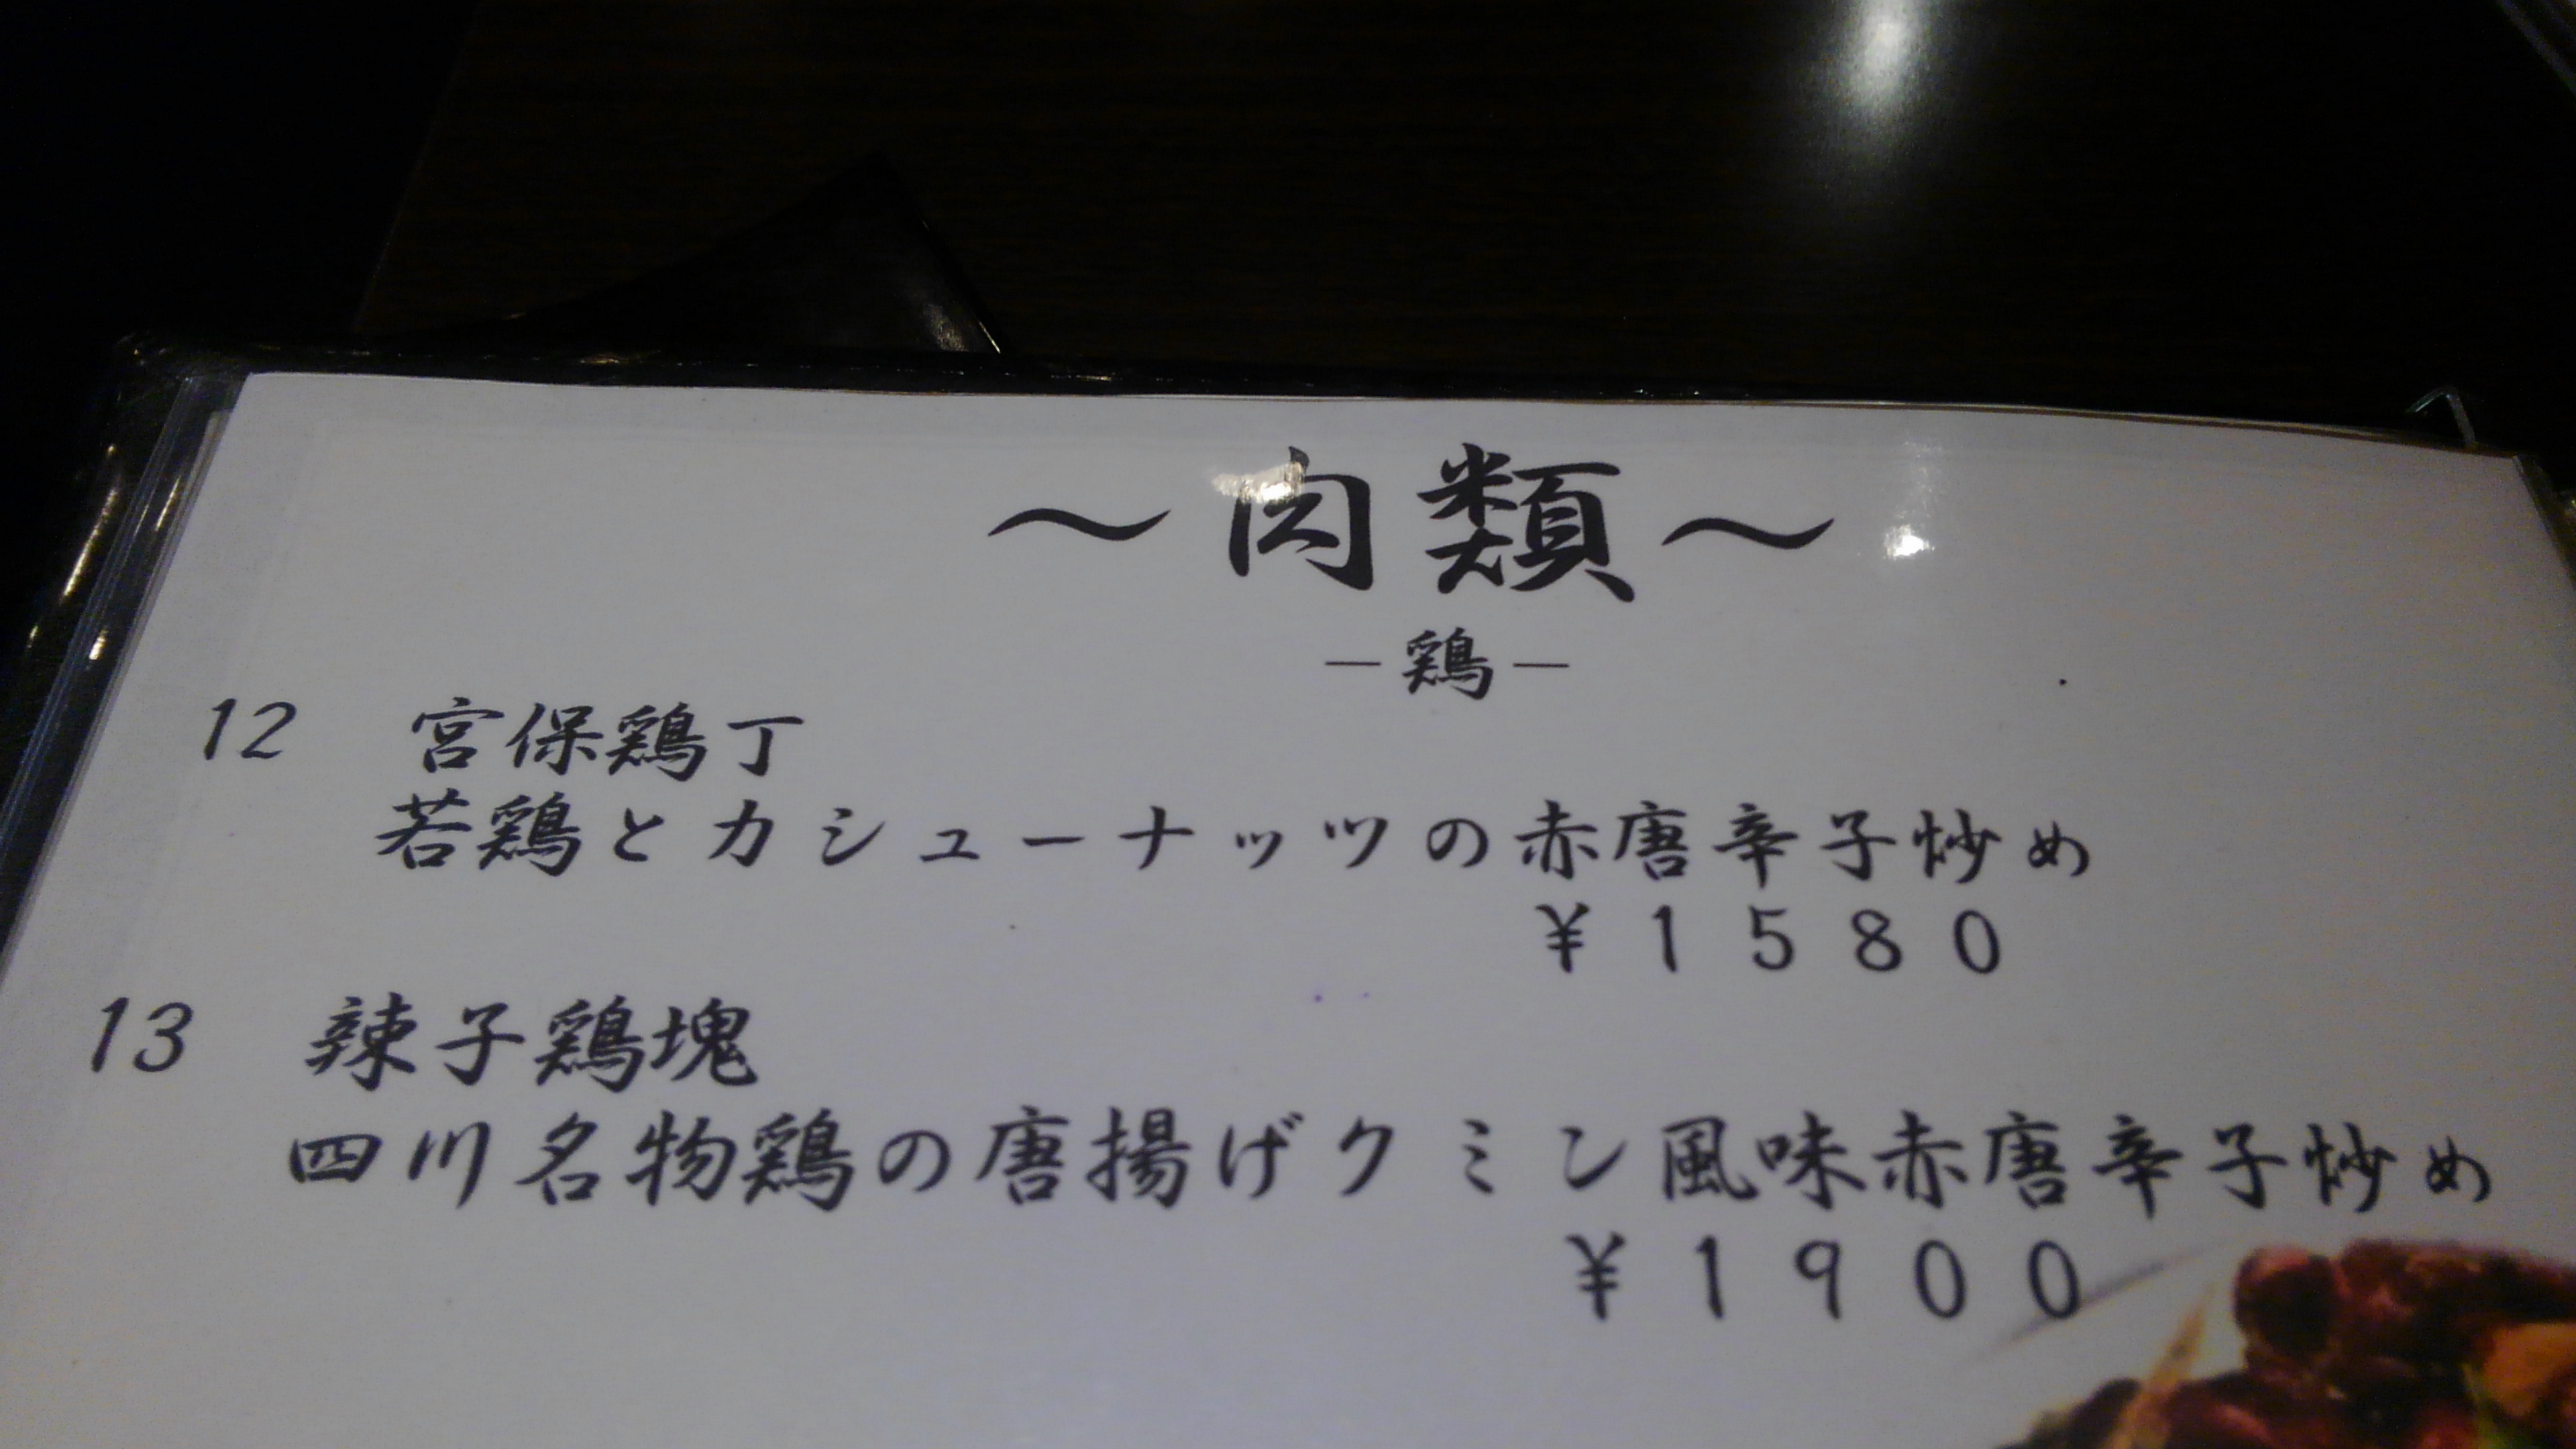 ～肉類～
－鶏－
12 宮保鶏丁
若鶏とカシューナッツの赤唐辛子炒め
¥1580
13 辣子鶏塊
四川名物鶏の唐揚げクミン風味赤唐辛子炒め
¥1900